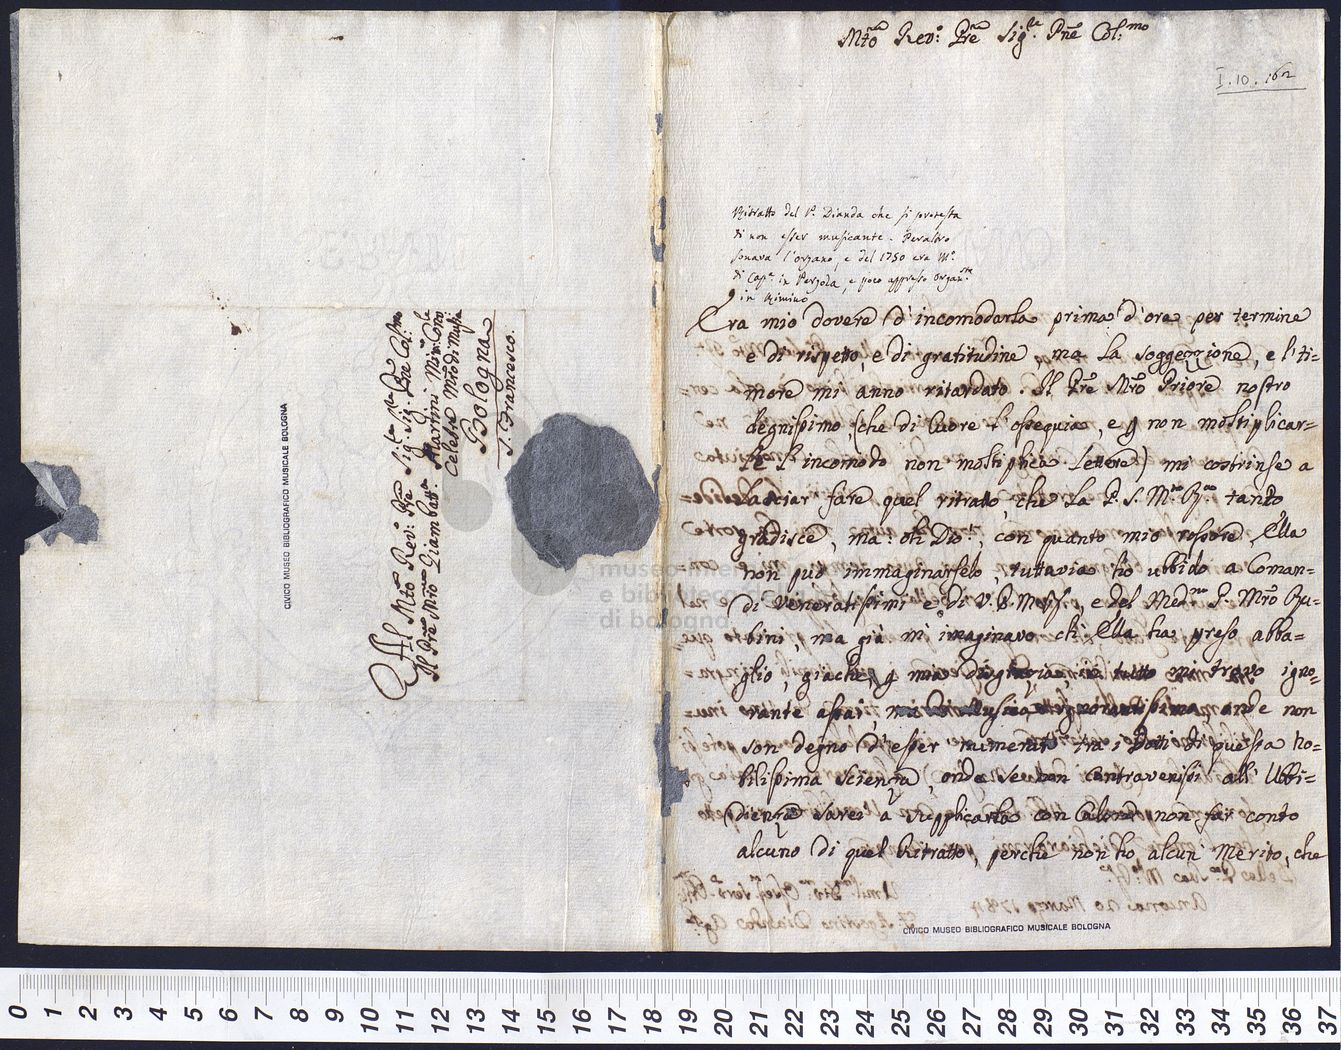 Mto Rev: Pre Sigr. Pne Col:mo
I. 10. 162
Ritratto del P. Dianda che si protesta
di non esser musicante. Peraltro
sonava l'organo, e del 1750 era Mo.
di Capa. in Pergola, e poco appresso Organ.sta
in Rimino
Era mio dovere d'incomodarla prima d'ora per termine
e di rispetto, e di gratitudine, ma la soggezzione, e l'ti=
more mi anno ritardato. Il Pre Mro Priore nostro
degnissimo, (che di Cuore l'ossequia, e p non moltiplicar=
le l'incomodo non moltiplica Lettere) mi costrinse a
lasciar fare quel ritratto, che la P. S. M. tanto
gradisce, ma: oh Dio!, con quanto mio rossore, Ella
non può immaginarselo, tuttavia ho ubbido a Coman=
di veneratissimi e di V. P. M. Rssa, e del Medmo P. Mro Ru=
bini, ma già mi imaginavo, ch'Ella ha preso abba=
glio, giache, p mia disgrazia, in tutto mi trovo igno=
rante assai, ma di Musica, ignorantissimo, onde non
son degno d'esser numerato tra i Dotti di questa no=
bilissima scienza, onde se non contravenissi all'Ubbi=
dienza sarei a supplicarla con Calore non far conto
alcuno di quel Ritratto, perche non ho alcun Merito, che
Al Mto Rev: Pre Sigr Sig. Pne Col:mo
Il Pre Mro Giambatta. Martini Min: Conle
Celebe Mro di Musica
Bologna
S. Francesco.
CIVICO MUSEO BIBLIOGRAFICO MUSICALE BOLOGNA
CIVICO MUSEO BIBLIOGRAFICO MUSICALE BOLOGNA
museo inter
e biblioteca della
di bologna
0 1 2 3 4 5 6 7 8 9 10 11 12 13 14 15 16 17 18 19 20 21 22 23 24 25 26 27 28 29 30 31 32 33 34 35 36 37